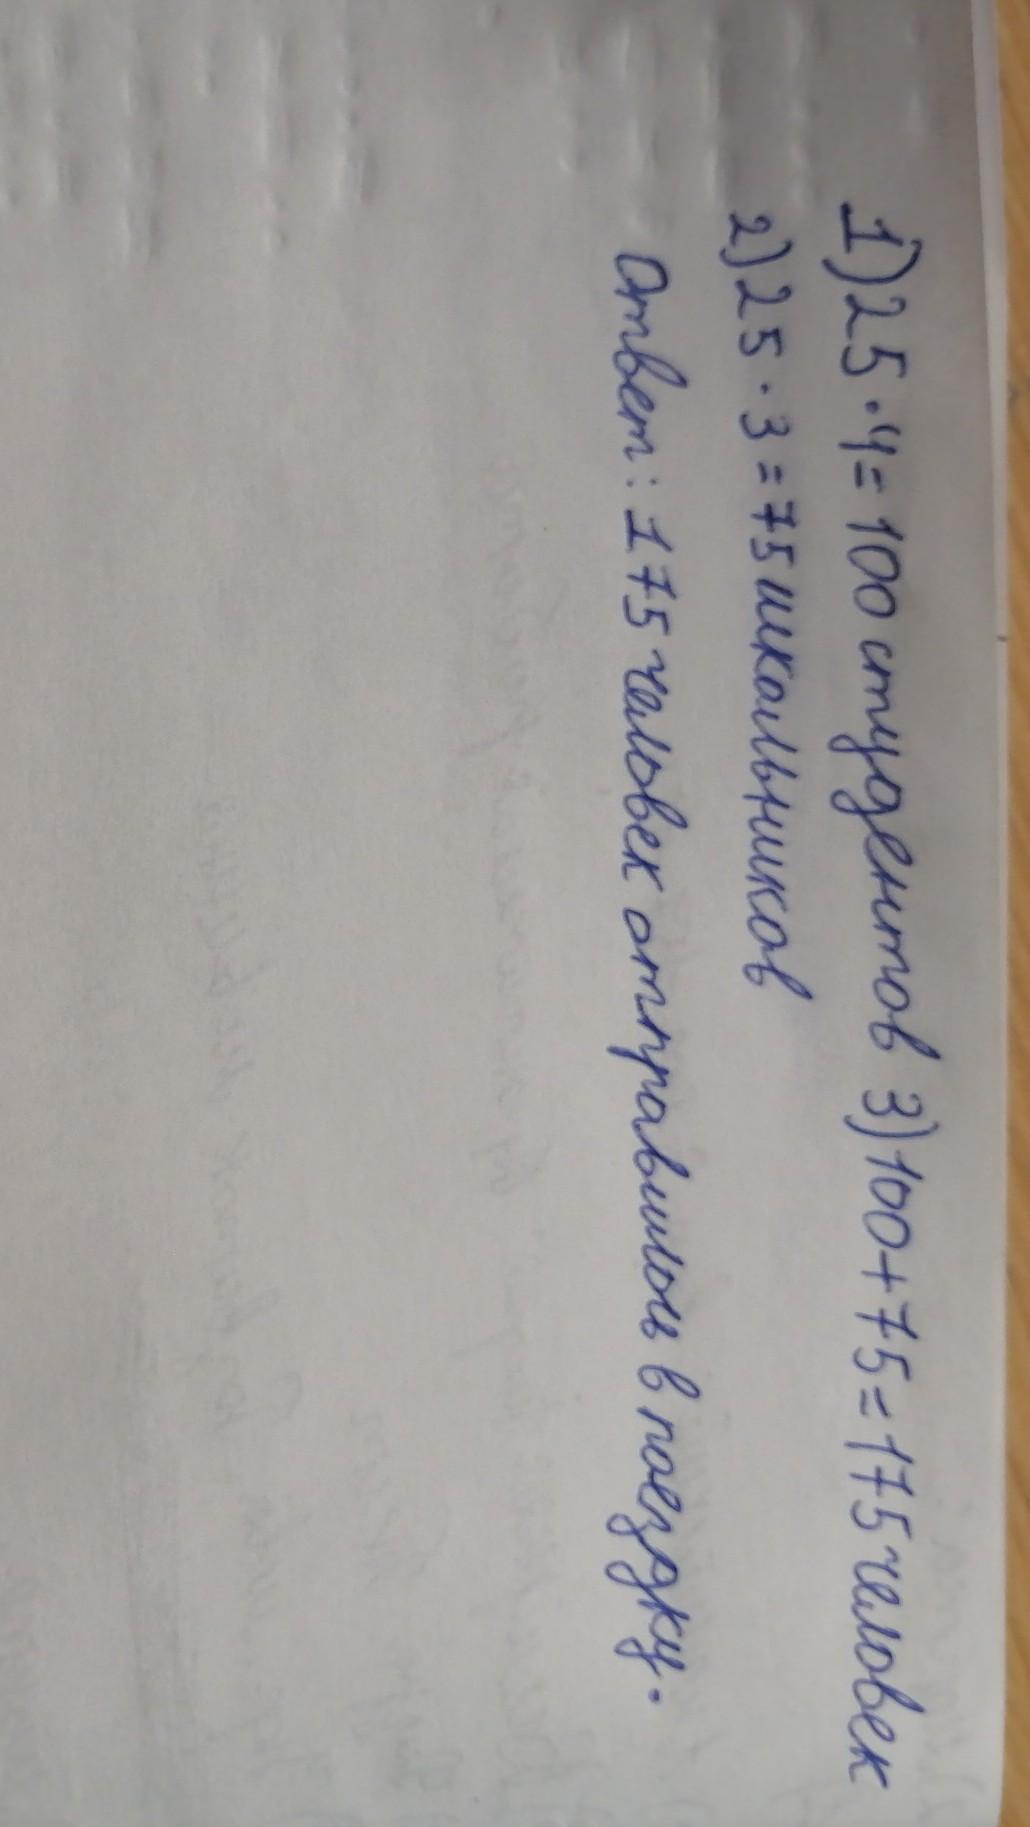 1) 25 · 4 = 100 студентов 3) 100 + 75 = 175 человек
2) 25 · 3 = 75 школьников
Ответ: 175 человек отправились в поездку.